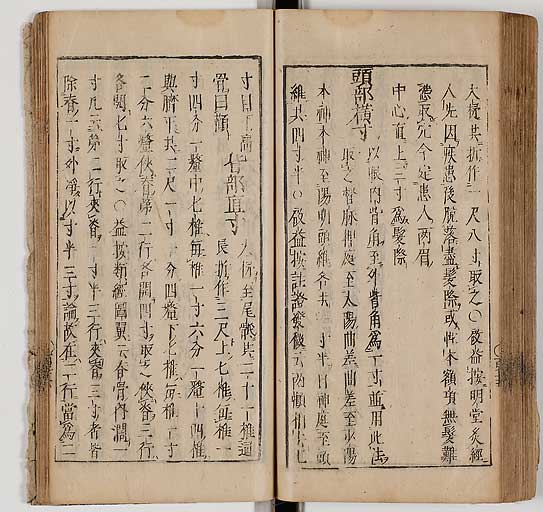 大椎共折作一尺八寸取之〇啟益按明堂灸經
人先因疾患後脫落盡髮際或性本額項無髮難
憑取穴今定患人兩眉
中心直上三寸為髮際
頭部橫寸
以眼內眥角至外眥角為一寸並用此法
取之督脉神庭至太陽曲差曲差至少陽
本神本神至陽明頭維各去一寸半自神庭至頭
維共四寸半〇啟益按註證發微云兩顴相去七
寸
骨曰顴
背部直寸
大椎至尾骶共二十一椎通
長折作三尺上七椎每椎一
寸四分一釐中七椎每椎一寸六分一釐十四椎
與臍平共二尺一寸一分四釐下七椎每椎一寸
二分六釐俠脊第二行各開四寸取之俠脊三行
各開七寸取之〇益按新經圖翼云脊骨內濶一
寸凡云第二行夾脊一寸半三行夾脊三寸者皆
除脊一寸外淨以寸半三寸論故在二行當為二